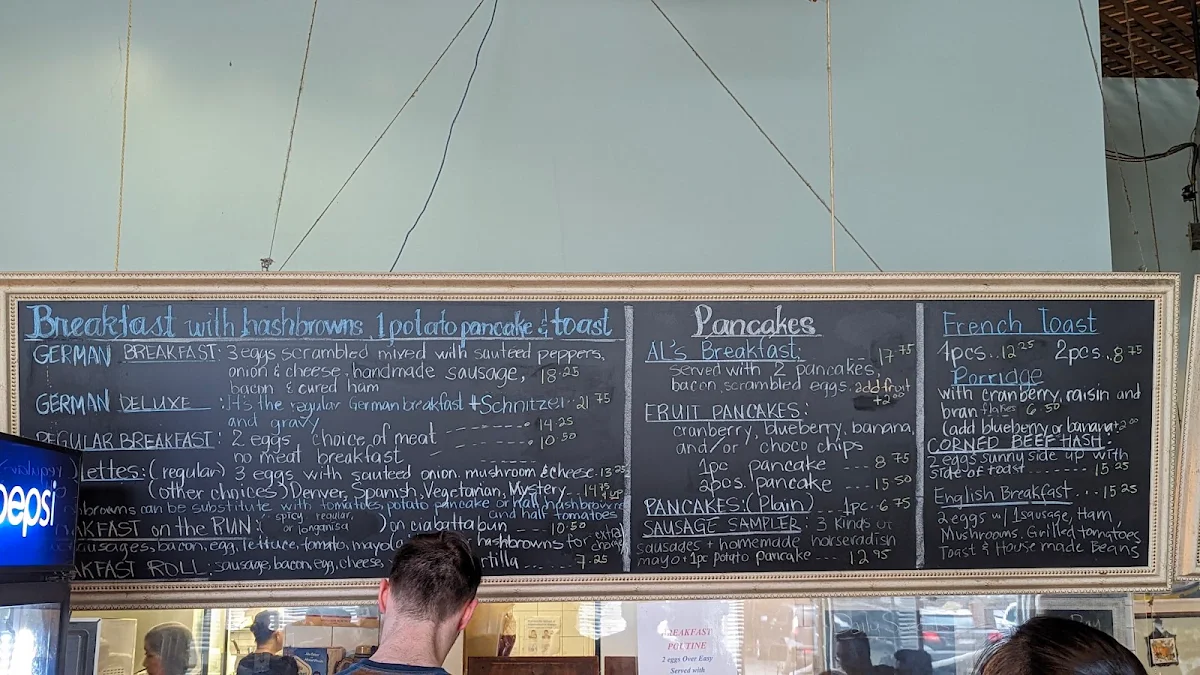 Breakfast with hashbrowns, 1 potato pancake & toast
GERMAN BREAKFAST: 3 eggs scrambled mixed with sauteed peppers,
onion & cheese, handmade sausage, 18.25
bacon & cured ham
GERMAN DELUXE: It's the regular German breakfast + Schnitzel.. 21 75
and gravy
REGULAR BREAKFAST: 2 eggs, choice of meat 14 25
no meat breakfast 10 50
lettes: (regular) 3 eggs with sauteed onion, mushroom & cheese. 13 25
(other choices) Denver, Spanish, Vegetarian, Mystery
browns can be substitute with tomatoes, potato pancake or half hashbrowns
and half tomatoes
AKFAST on the RUN: (spicy, regular, or longanisa) on ciabatta bun ---- 10.50
sausages, bacon, egg, lettuce, tomato, mayo hashbrowns for extra charge
AKFAST ROLL: sausage, bacon, egg, cheese rtilla .... 7.25
Pancakes
AL's Breakfast: 17 75
served with 2 pancakes,
bacon, scrambled eggs. add fruit
+2 00
FRUIT PANCAKES:
cranberry, blueberry, banana,
and/or choco chips
1pc pancake ---- 8 75
2pcs. pancake ---- 15 50
PANCAKES: (Plain) 1pc. 6 75
SAUSAGE SAMPLER: 3 kinds of
sausages + homemade horseradish
mayo + 1pc potato pancake --- 12 95
French Toast
1pcs.. 12 25 2pcs.. 8 75
Porridge
with cranberry, raisin and
bran flakes 6 50
(add blueberry or banana +2 00
CORNED BEEF HASH:
2 eggs sunny side up with
side of toast 15 25
English Breakfast ... 15 25
2 eggs w/ 1 sausage, Ham,
Mushrooms, Grilled tomatoes,
Toast & House made Beans
pepsi
BREAKFAST
POUTINE
2 eggs Over Easy
Served with